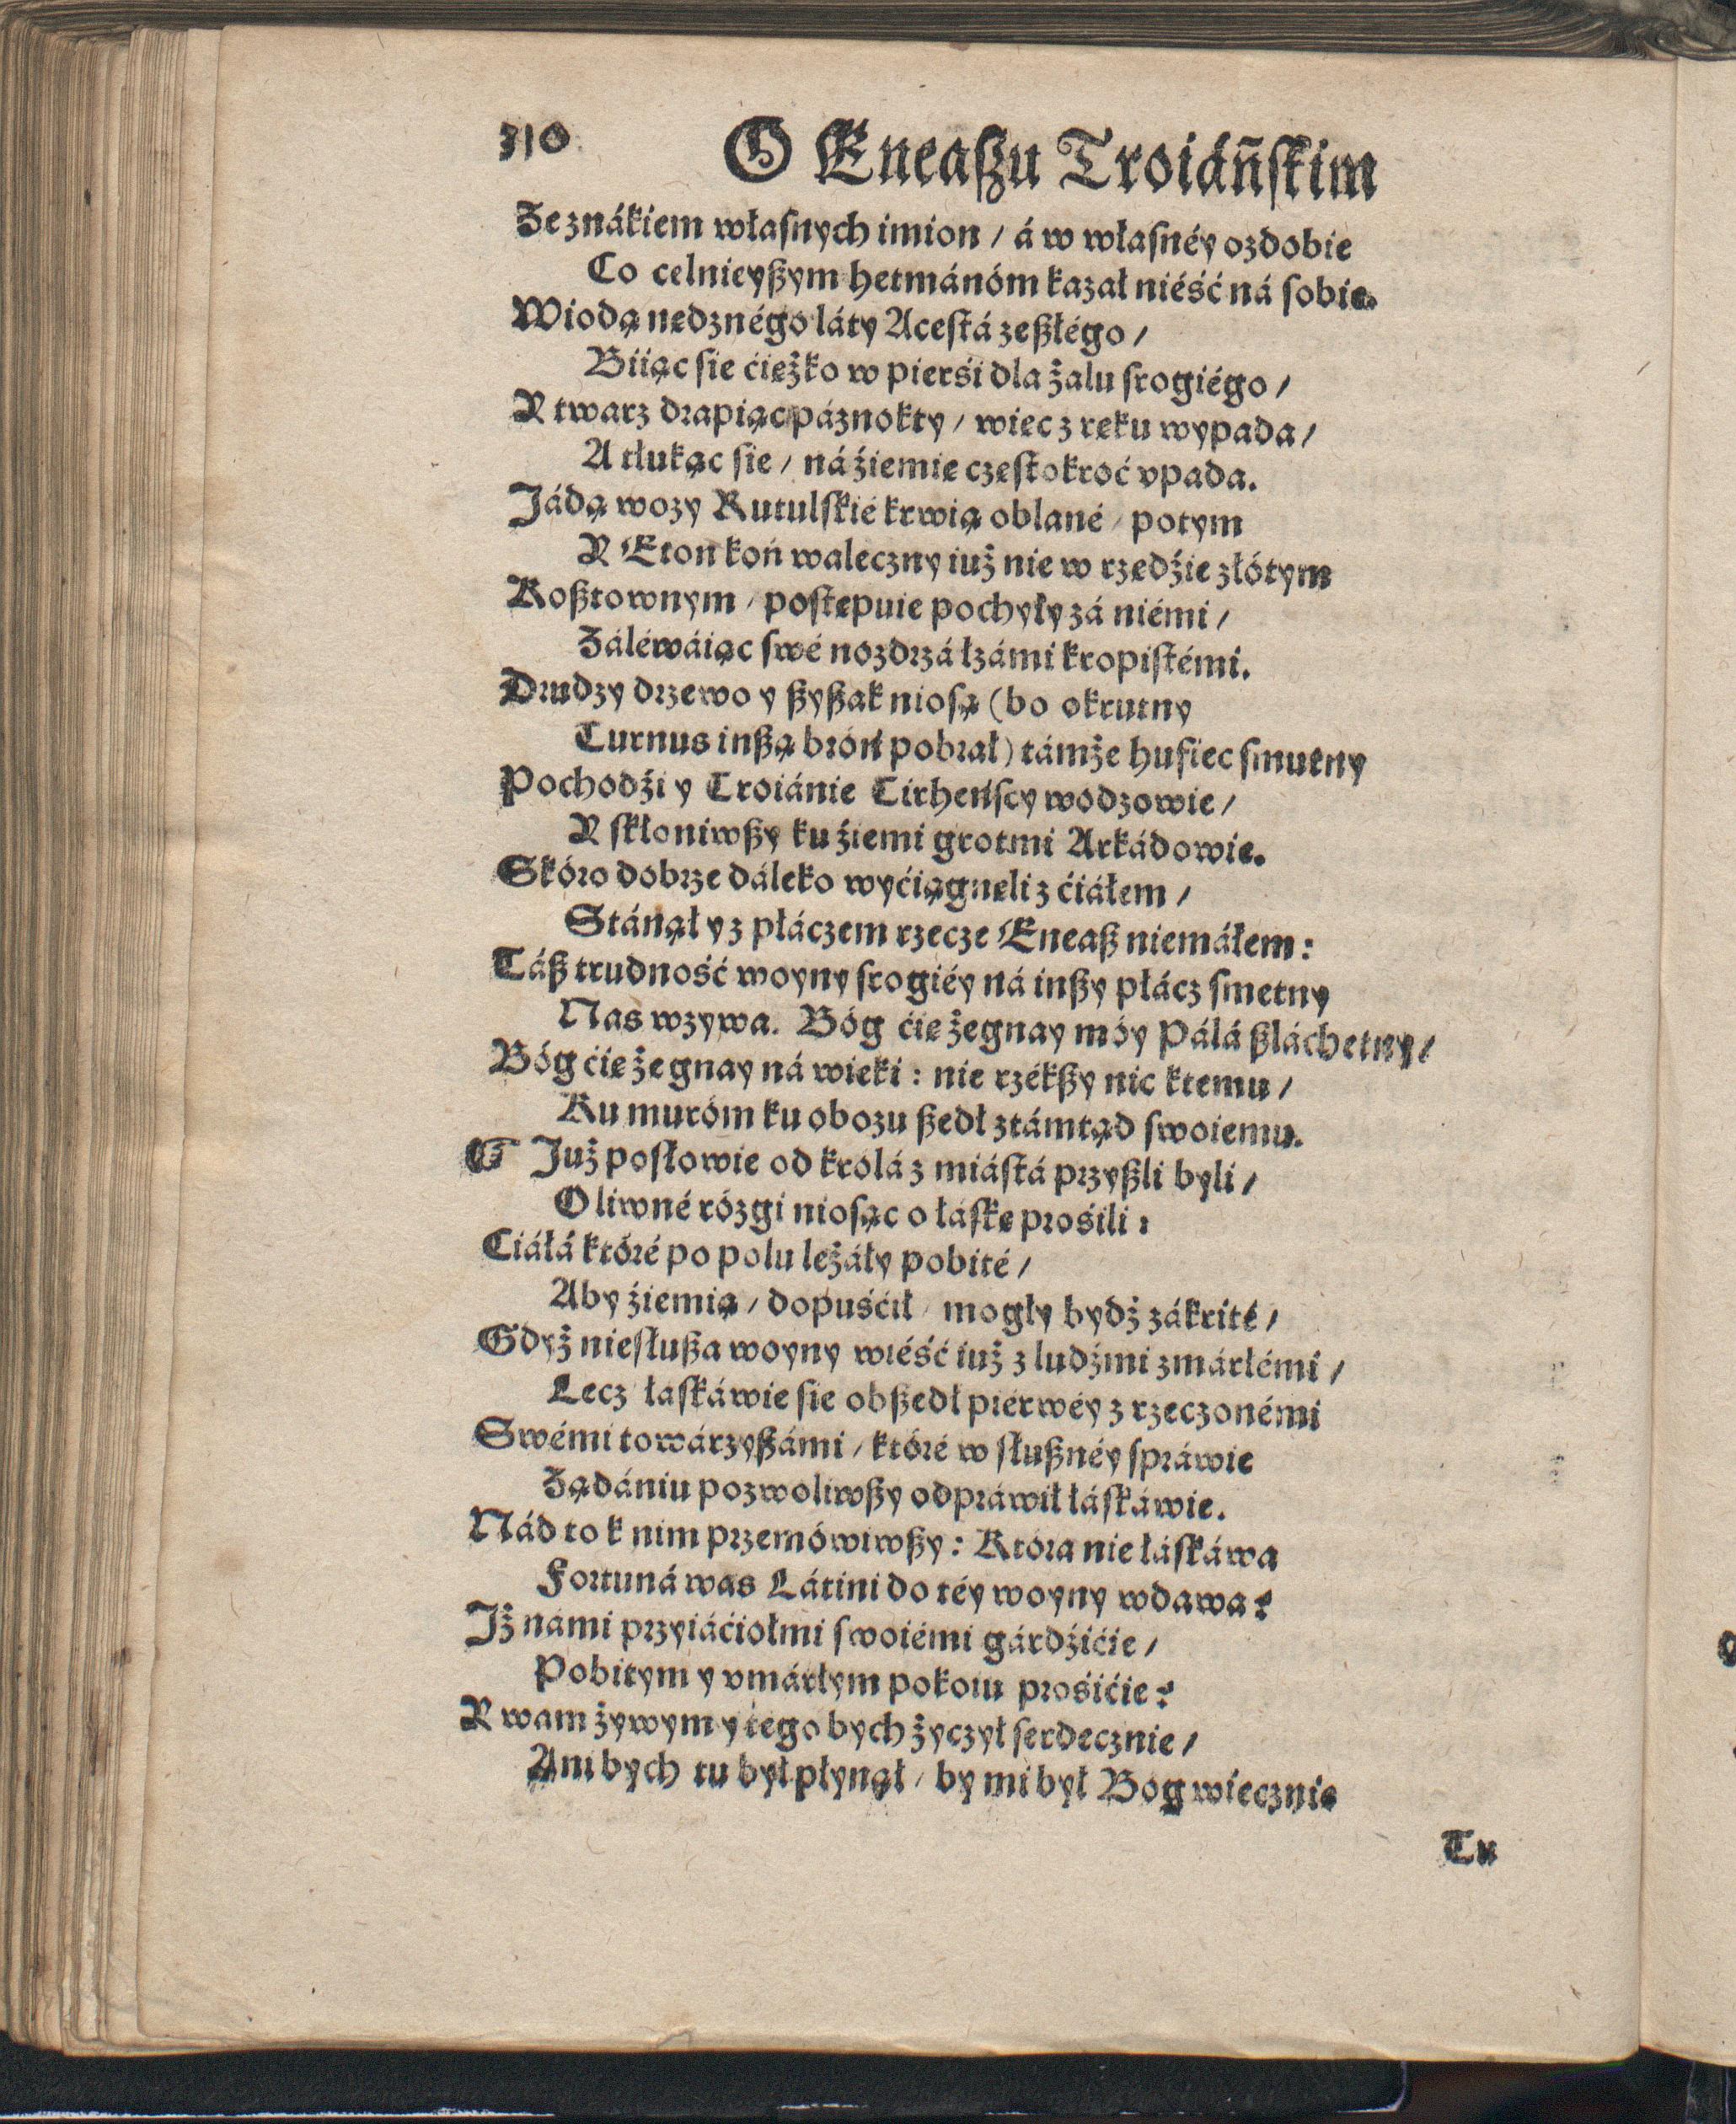 310 O Eneaszu Troiáńskim
Ze znákiem własnych imion / á w własnéy ozdobie
Co celnieyszym hetmánóm kazał niéść ná sobie.
Wiodą nędznégo láty Acestá zeszłégo /
Biiąc się ciężko w pierśi dla żalu srogiégo /
Y twarz drapiąc páznokty / więc z ręku wypada /
A tłukąc się / ná źiemię częstokroć vpada.
Jádą wozy Rutulskié krwią oblané / potym
Y Eton koń waleczny iuż nie w rzędźie złótym
Kosztownym / postępuie pochyły zá niémi /
Záléwáiąc swé nozdrzá łzámi kropistémi.
Drudzy drzewo y szyszak niosą (bo okrutny
Turnus inszą bróń pobrał) támże hufiec smutny
Pochodźi y Troiánie Tirheńscy wodzowie /
Y skłoniwszy ku źiemi grotmi Arkádowie.
Skóro dobrze dáleko wyćiągnęli z ćiáłem /
Stánął y z płáczem rzecze Eneasz niemáłem:
Tász trudność woyny srogiéy ná inszy płácz smętny
Nas wzywa. Bóg ćię żegnay móy Pálá szláchetny /
Bóg ćię żegnay ná wieki: nie rzékszy nic ktemu /
Ku muróm ku obozu szedł ztámtąd swoiemu.
☞ Już posłowie od królá z miástá przyszli byli /
Oliwné rózgi niosąc o łáskę prośili:
Ciáłá któré po polu leżáły pobité /
Aby źiemią / dopuśćił / mogły bydź zákrité /
Gdyż niesłusza woyny wiéść iuż z ludźmi zmárłémi /
Lecz łaskáwie się obszedł piérwéy z rzeczonémi
Swémi towárzyszámi / któré w słusznéy spráwie
Żądániu pozwoliwszy odpráwił łáskáwie.
Nád to k nim przemówiwszy: Która nie łáskáwa
Fortuná was Látini do téy woyny wdawa?
Jż námi przyiáćiołmi swoiémi gárdźićie /
Pobitym y vmárłym pokoiu prośićie?
Y wam żywym y tego bych życzył serdecznie /
Ani bych tu był płynął / by mi był Bóg wiecznie
Tu